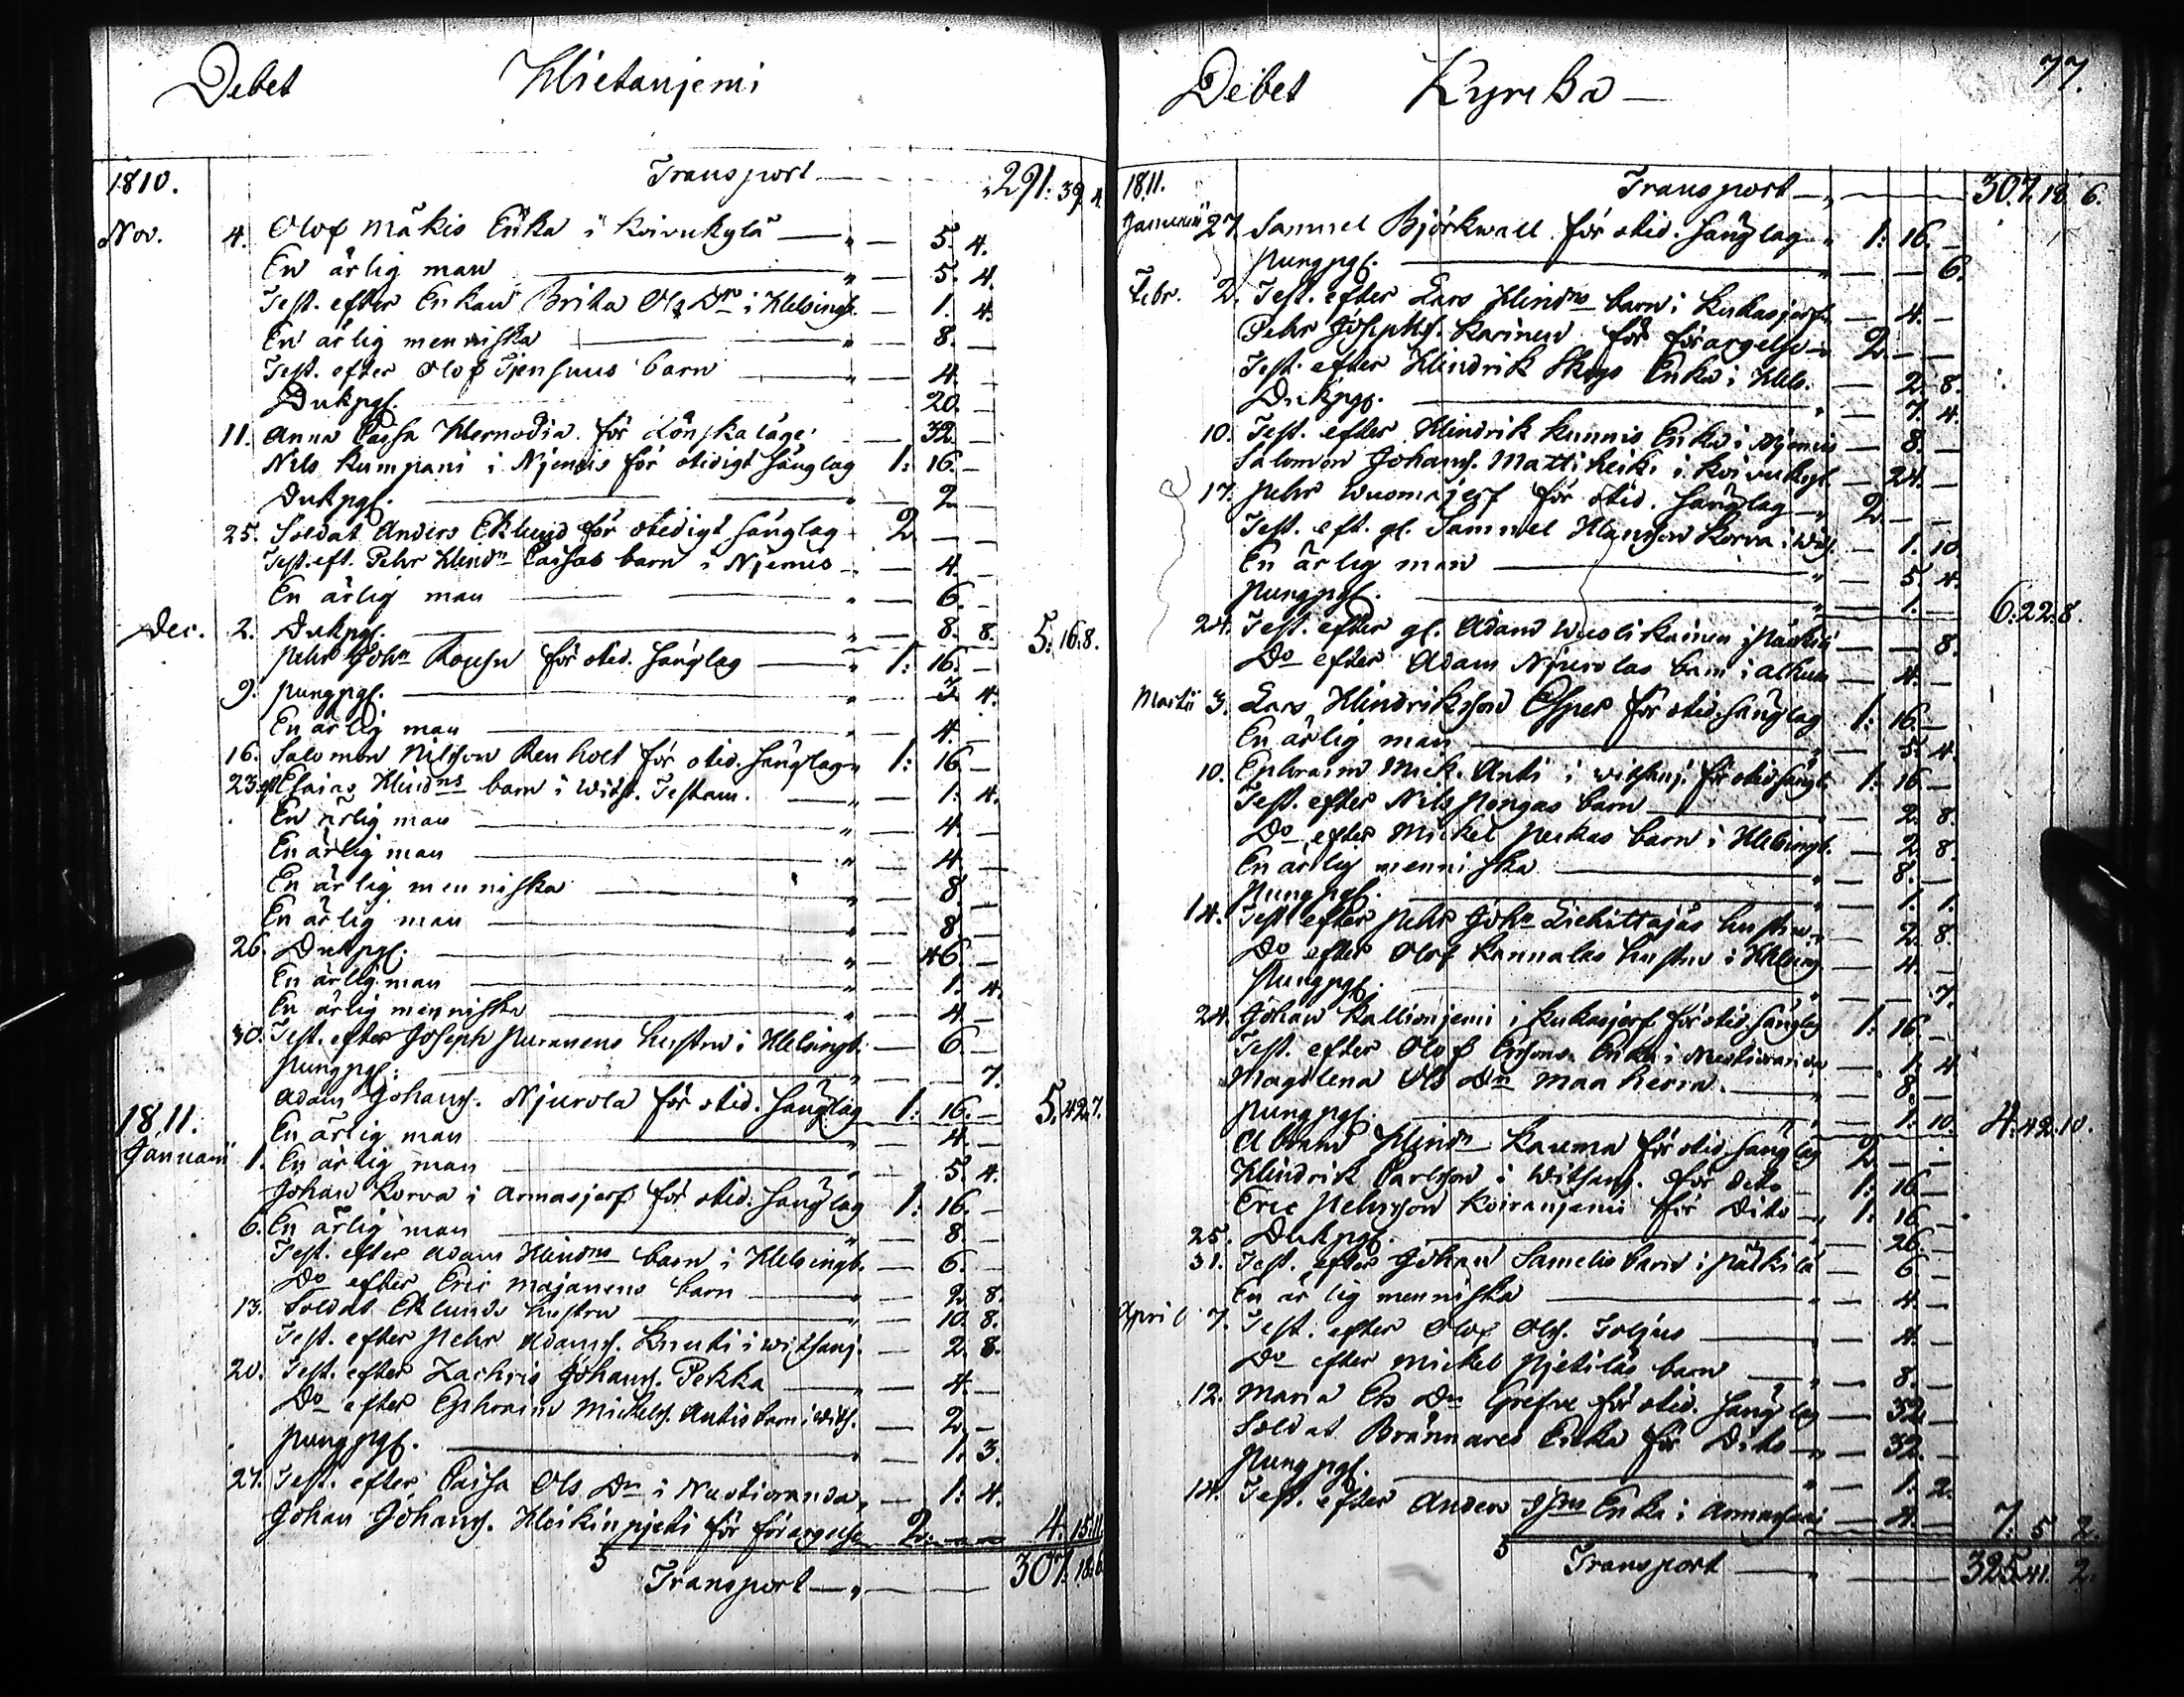 Debet Hietanjemi
1810. Transport 291: 39. 4.
Nov. 4. Olof Mäkis Enka i Koivukylä 5. 4.
En ärlig man 5. 4.
Test. efter Enkan Brita Ols Dr i Helsingb. 1. 4.
En ärlig menniska 8. —
Test. efter Olof barn 4. —
Dukpgr. 20. —
11. Anna Caisa Hernodia för Lönskaläge 32. —
Nils Kumpani i Njemis för otidigt Sänglag 1: 16. —
Dukpgr. 2 —
25. Soldat Anders Eklund för otidigt Sänglag 2. — —
Test. eft. Pehr Hindn barn i Njemis 4. —
En ärlig man 6. —
Dec. 2. Dukpgr. 8. 8. 5: 16. 8.
Pehr John för otid. Sänglag 1: 16. —
9. Pungpgr. 3. 4.
En ärlig man 4. —
16. Salomon Nilsson Renholt för otid. Sänglag 1: 16. —
23. eft Esaias Hindns barn i Wits. Testam. 1: 4.
En ärlig man 4. —
En ärlig man 4. —
En ärlig menniska 8. —
En ärlig man 8. —
26. Dukpgr. 46. —
En ärlig man 1. 4.
En ärlig menniska 4. —
30. Test. efter Joseph Puranens hustru i Helsingb. 6. —
Pungpgr. 7.
Adam Johans. Njurola för otid. Sänglag 1: 16. — 5. 42. 7.
1811. En ärlig man 4. —
Januarii 1. En ärlig man 5. 4.
Johan Korva i Armasjerf för otid. Sänglag 1: 16. —
6. En ärlig man 8. —
Test. efter Adam Hindns barn i Helsingb. 6. —
Do efter Eric Majanens barn 2. 8.
13. Soldat Eklunds hustru 10. 8.
Test. efter Pehr Adams. Knuti i Witsanj. 2. 8.
20. Test. efter Zachris Johans. Pekka 4. —
Do efter Ephraim Mickels. Antis barn i Wits. 2. —
Pungpgr. 1. 3.
27. Test. efter Caisa Ols Dr i Nuotioranda 1. 4.
Johan Johans. Heikinpjeti för förargelse 2. — — 4. 15. 11.
5 Transport 307. 18. 6.
Debet Kyrka — 77.
1811. Transport 307. 18. 6.
Januarii 27. Samuel Björkwall för otid. Sänglag 1: 16. —
Pungpgr. 6.
Febr. 2. Test. efter Lars Hindns barn i Kukasjerf 4. —
Pehr Josephs. Karinen för förargelse 2. — —
Test. efter Hindrik Skogs Enka i Hels. 2. 8.
Dukpgr. 7. 4.
10. Test. efter Hindrik Kunnis Enka i Njemis 8. —
Salomon Johans. Mattiheiki i Koivukyl. 24. —
17. Pehr Wuomajerf för otid. Sänglag 2. — —
Test. eft. gl. Samuel Hansson Korva i Wits. 1. 10.
En ärlig man 5. 4.
Pungpgr. 1. — 6: 22. 8.
24. Test. efter gl. Adam Wuolikainen i Päckilä 8.
Do efter Adam Njurolas barn i Alkula 4. —
Martii 3. Lars Hindriksson för otid. Sänglag 1: 16. —
En ärlig man 5. 4.
10. Ephraim Mick. Anti i Witsanj. för otid Sängl. 1: 16. —
Test. efter Nils Pongas barn 2. 8.
Do efter Mickel Peckas barn i Helsingb. 2. 8.
En ärlig menniska 8. —
Pungpgr. 1. 1.
14. Test. efter Pehr John Liehittäjäs hustru 2. 8.
Do efter Olof Kannalas hustru i Helsing. 4. —
Pungpgr. 7.
24. Johan Kallionjemi i Kukasjerf för otid. Sänglag 1: 16. —
Test. efter Olof Ersons Enka i Nuotioranda 1. 4.
Magdlena Ols Dr Maaherra 8. —
Pungpgr. 1: 10. 4. 42. 10.
Abram Hindn Kauma för otid Sänglag 2. — —
Hindrik Carlsson i Witsanj. för Dito 1: 16. —
Eric Pehrsson Koiranjemi för Dito 1: 16. —
25. Dukpgr. 26. —
31. Test. efter Johan Samelis barn i Päckilä 6. —
En ärlig menniska 4. —
April 7. Test. efter Olof Ols. 4. —
Do efter Mickel Pjetiläs barn 8. —
12. Maria Ers Dr för otid. Sänglag 32. —
Soldat Brännares Enka för Dito 32. —
Pungpgr. 1. 2.
14. Test. efter Anders Enka i Armasjerf 4. — 7. 5. 2.
5 Transport 325. 41. 2.